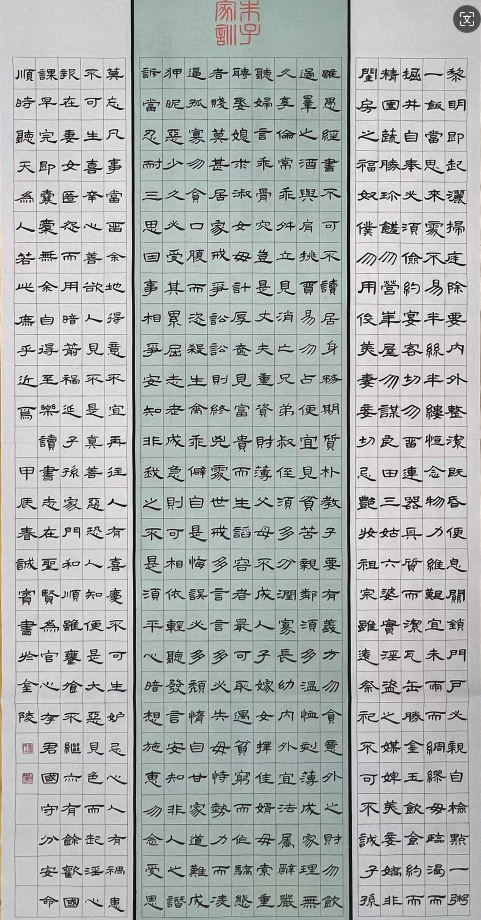 朱子
家訓
黎明即起灑掃庭除要內外整潔既昏便息關鎖門戶必親自檢點一粥
一飯當思來處不易半絲半縷恒念物力維艱宜未雨而綢繆毋臨渴而
掘井自奉必須儉約宴客切勿留連器具質而潔瓦缶勝金玉飲食約而
精園蔬勝珍饈勿營華屋勿謀良田三姑六婆實淫盜之媒婢美妾嬌非
閨房之福奴僕勿用俊美妻妾切忌艷妝祖宗雖遠祭祀不可不誠子孫
雖愚經書不可不讀居身務期質朴教子要有義方勿貪意外之財勿飲
過量之酒與肩挑貿易勿占便宜見貧苦親鄰須多溫恤刻薄成家理無
久享倫常乖舛立見消亡兄弟叔侄須多分潤寡長幼內外宜法屬辭嚴
聽婦言乖骨肉豈是丈夫重資財薄父母不成人子嫁女擇佳婿毋索重
聘娶媳求淑女毋計厚奩見富貴而生諂容者最可恥遇貧窮而作驕態
者賤莫甚居家戒爭訟訟則終凶處世戒多言言多必失毋恃勢力而凌
逼孤寡勿貪口腹而恣殺生禽乖僻自是悔誤必多頹惰自甘家道難成
狎昵惡少久必受其累屈志老成急則可相依輕聽發言安知非人之譖
訴當忍耐三思因事相爭安知非我之不是須平心暗想施惠勿念受恩
莫忘凡事當留余地得意不宜再往人有喜慶不可生妒忌心人有禍患
不可生喜幸心善欲人見不是真善惡恐人知便是大惡見色而起淫心
報在妻女匿怨而用暗箭禍延子孫家門和順雖饔飧不繼亦有餘歡國
課早完即囊橐無余自得至樂讀書志在聖賢為官心存君國守分安命
順時聽天為人若此庶乎近焉 甲辰春誠賓書於金陵